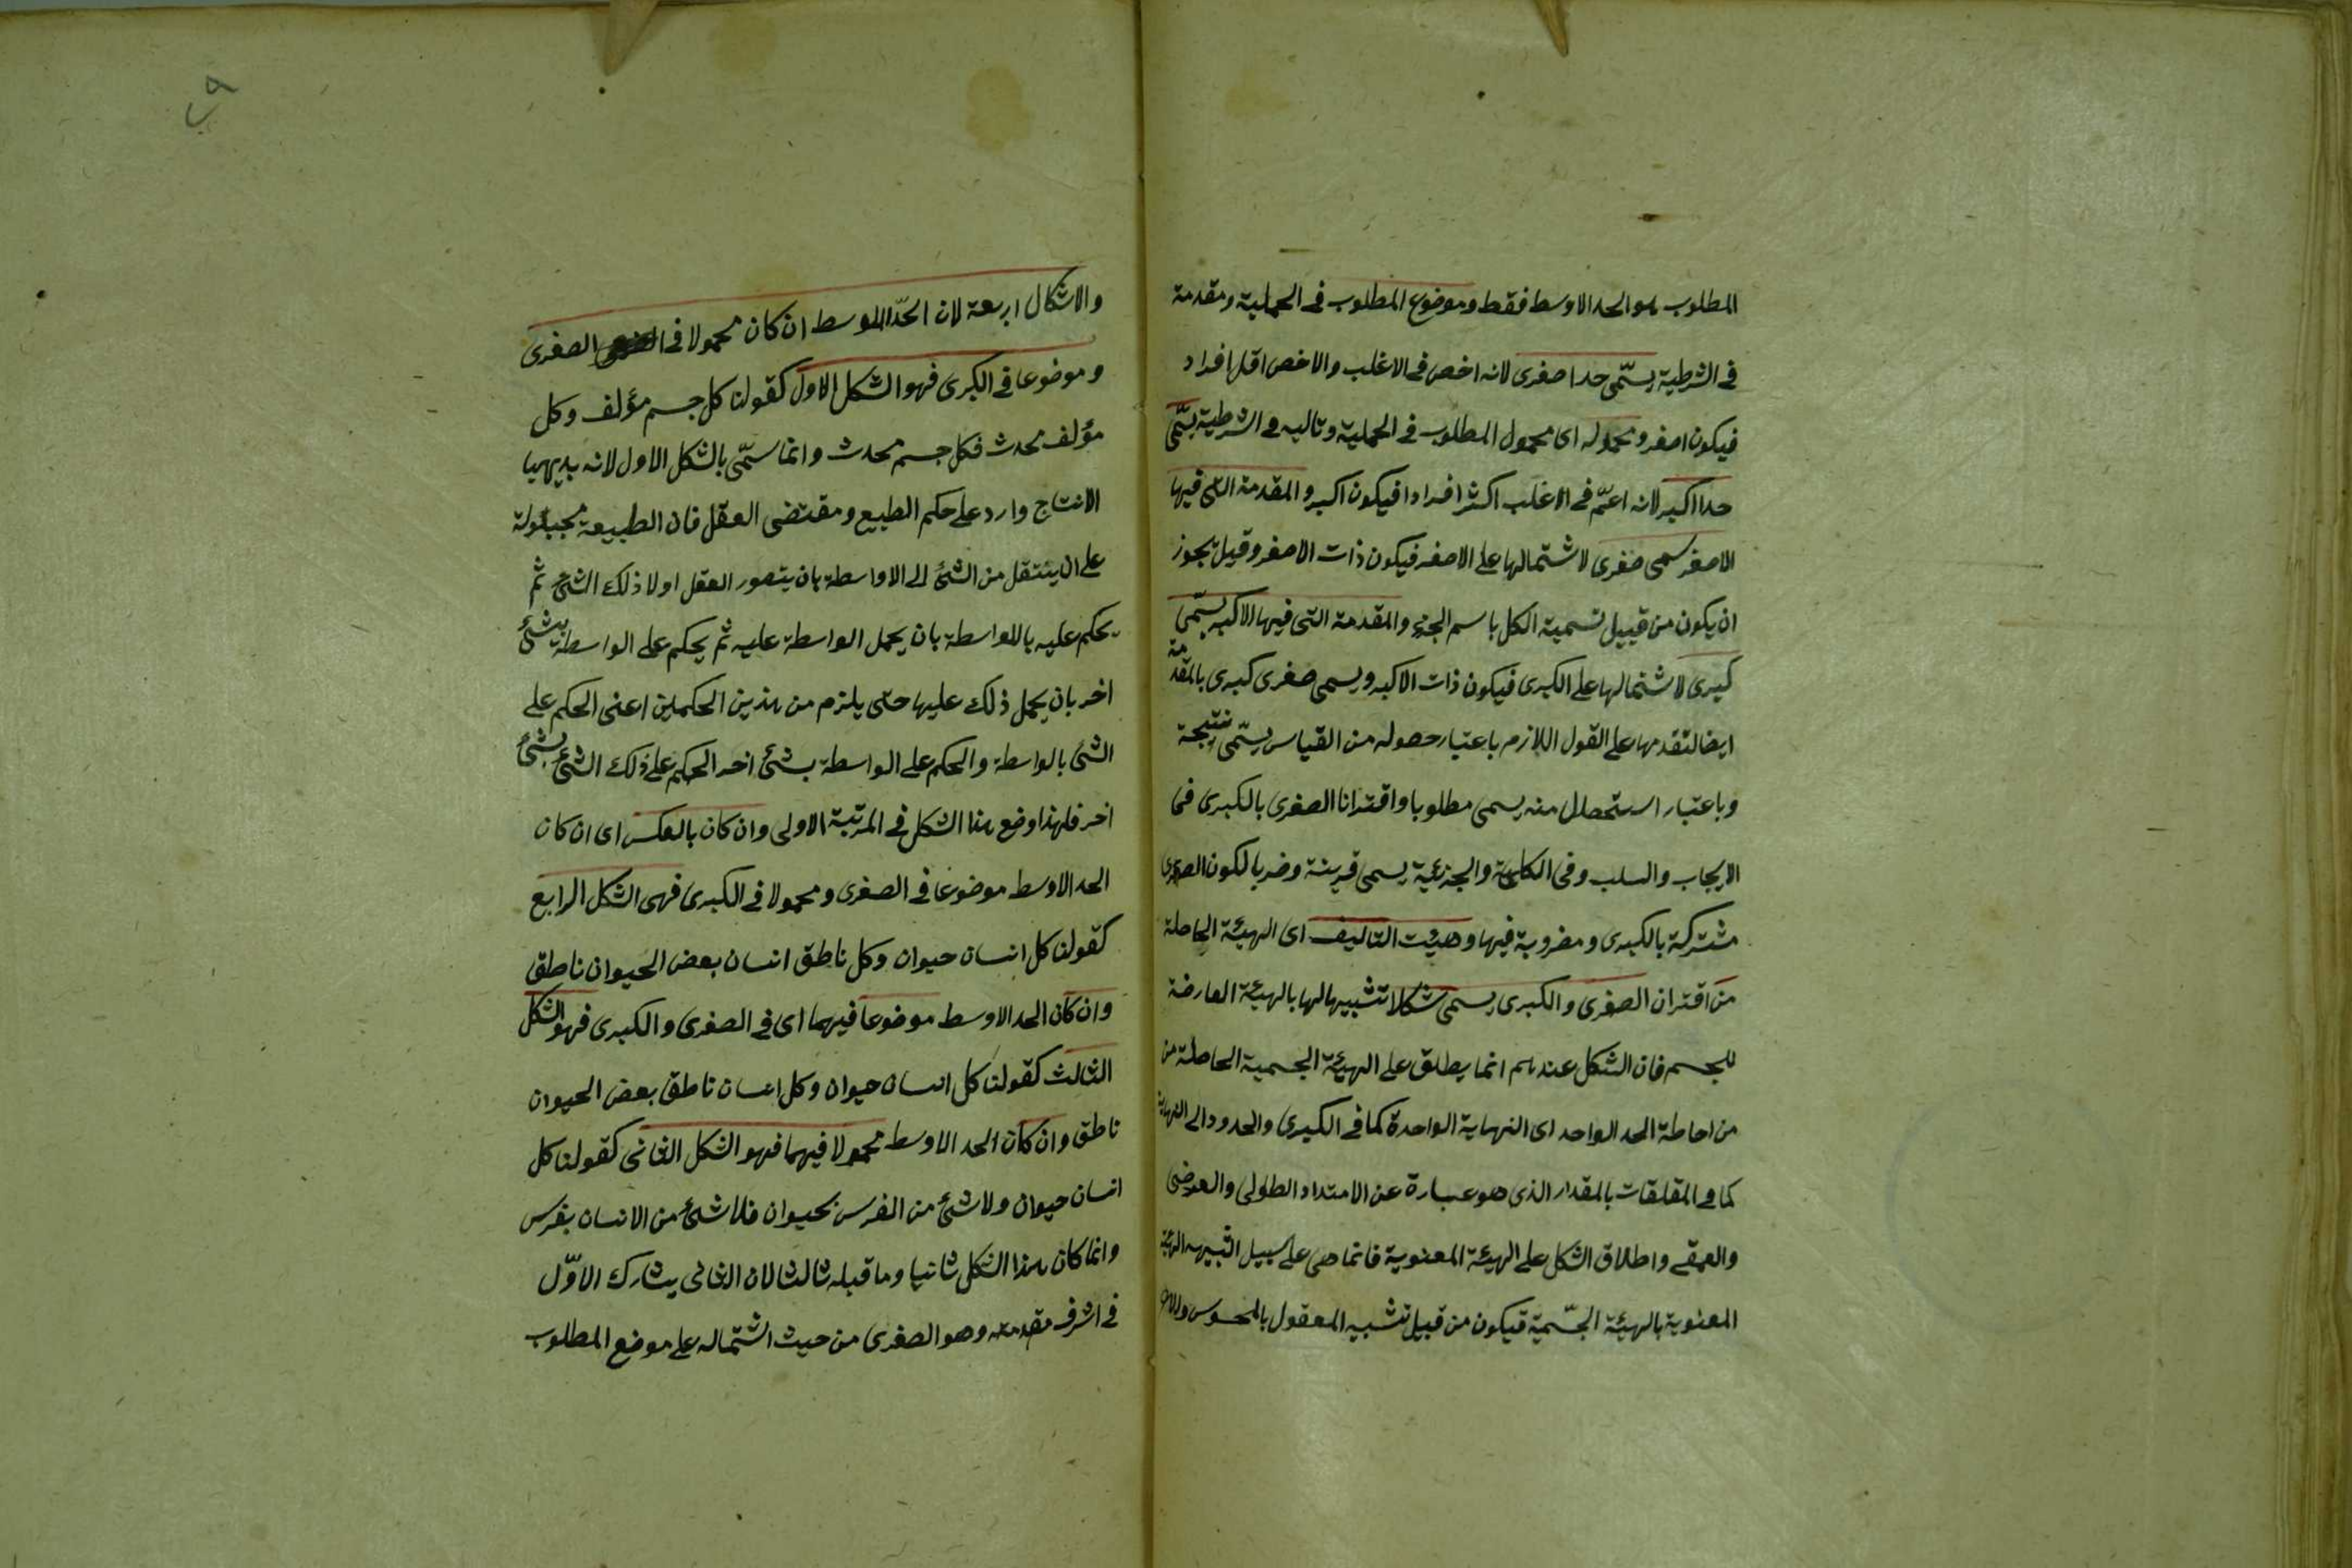 المطلوب هو الحد الاوسط فقط وموضوع المطلوب فى الحملية ومقدمة
فى الشرطية يسمّى حدا صغرى لانه اخص فى الاغلب والاخص اقل افراد
فيكون اصغر ومحموله اى محمول المطلوب فى الحملية وتاليه فى الشرطية يسمّى
حدا اكبر لانه اعمّ فى الاغلب اكثر افرادا فيكون اكبر والمقدمة التى فيها
الاصغر سمى صغرى لاشتمالها على الاصغر فيكون ذات الاصغر وقيل يجوز
ان يكون من قبيل تسمية الكل باسم الجزء والمقدمة التى فيها الاكبر يسمّى
كبرى لاشتمالها على الكبرى فيكون ذات الاكبر ويسمى صغرى كبرى بالمقدمة
ايضا لتقدمها على القول اللازم باعتبار حصوله من القياس يسمّى نتيجة
وباعتبار استحصال منه يسمى مطلوبا واقترانا الصغرى بالكبرى فى
الايجاب والسلب وفى الكلية والجزئية يسمى قرينة وضربا لكون الصغرى
مشتركة بالكبرى ومضروبة فيها وهيئت التاليف اى الهيئة الحاصلة
من اقتران الصغرى والكبرى يسمى شكلا تشبيها لها بالهيئة العارضة
للجسم فان الشكل عندهم انما يطلق على الهيئة الجسمية الحاصلة من
من احاطة الحد الواحد اى النهاية الواحدة كما فى الكبرى والحدود الى النهاية
كما فى المقلقات بالمقدار الذى هو عبارة عن الامتداد الطولى والعرضى
والعمقى واطلاق الشكل على الهيئة المعنوية فانما هى على سبيل التشبيه الهيئة
المعنوية بالهيئة الجسّمية فيكون من قبيل تشبيه المعقول بالمحسوس
والاشكال اربعة لان الحدّ الاوسط ان كان محمولا فى الصغرى
وموضوعا فى الكبرى فهو الشكل الاول كقولنا كل جسم مؤلف وكل
مؤلف محدث فكل جسم محدث وانما سمّى بالشكل الاول لانه بديهيا
الانتاج وارد على حكم الطبيع ومقتضى العقل فان الطبيعة مجبولة
على ان ينتقل من الشئ الى الاواسطة بان يتصور العقل اولا ذلك الشئ ثم
يحكم عليه بالواسطة بان يحمل الواسطة عليه ثم يحكم على الواسطة بشئ
اخر بان يحمل ذلك عليها حتى يلزم من هذين الحكمين اعنى الحكم على
الشئ بالواسطة والحكم على الواسطة بشئ اخر الحكم على ذلك الشئ بشئ
اخر فلهذا وضع هذا الشكل فى المرتبة الاولى وان كان بالعكس اى ان كان
الحد الاوسط موضوعا فى الصغرى ومحمولا فى الكبرى فهى الشكل الرابع
كقولنا كل انسان حيوان وكل ناطق انسان بعض الحيوان ناطق
وان كان الحد الاوسط موضوعا فيهما اى فى الصغرى والكبرى فهو الشكل
الثالث كقولنا كل انسان حيوان وكل انسان ناطق بعض الحيوان
ناطق وان كان الحد الاوسط محمولا فيهما فهو الشكل الثانى كقولنا كل
انسان حيوان ولا شئ من الفرس بحيوان فلا شئ من الانسان بفرس
وانما كان هذا الشكل ثانيا وما قبله ثالثا لان الثانى يشارك الاوّل
فى اشرف مقدمته وهو الصغرى من حيث اشتماله على موضع المطلوب